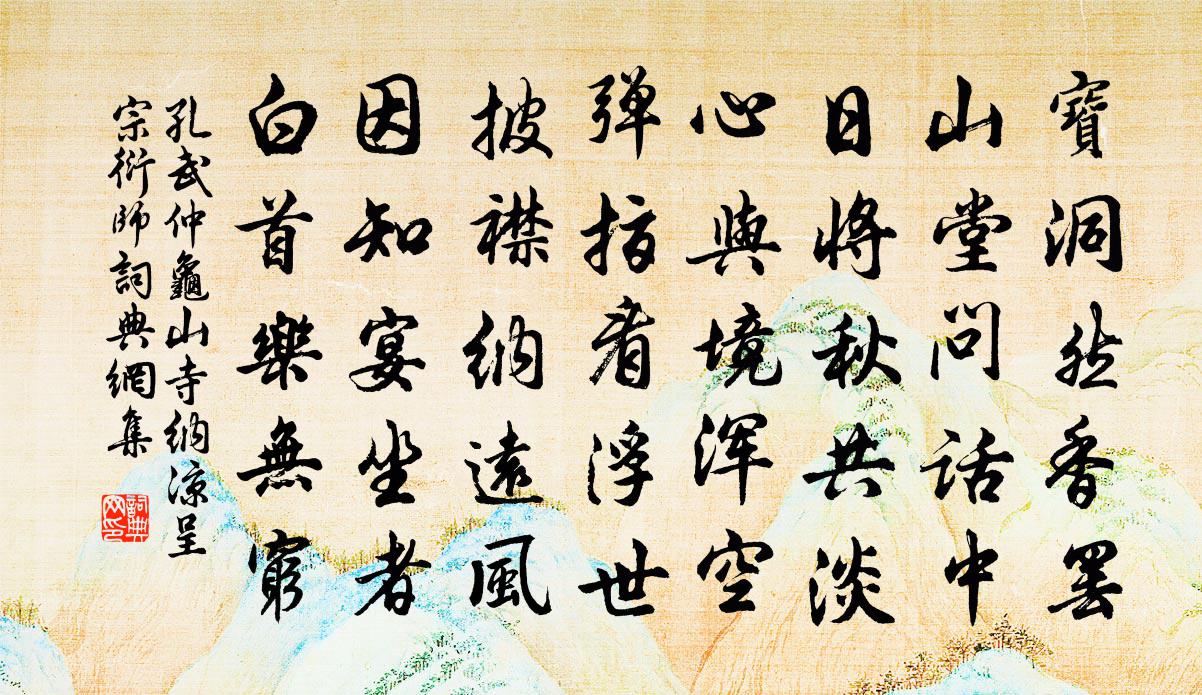 寶洞然香罷
山堂問話中
日將秋共淡
心與境渾空
彈指看浮世
披襟納遠風
因知宴坐者
白首樂無窮
孔武仲龜山寺納凉呈
宗衍師詞典網集
詞典
网印